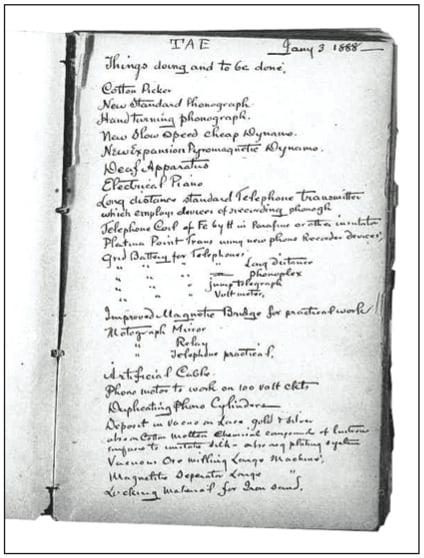 TAE
Jany 3 1888
Things doing and to be done.
Cotton Picker
New Standard Phonograph.
Hand turning phonograph.
New Slow Speed Cheap Dynamo.
New Expansion Pyromagnetic Dynamo.
Deaf Apparatus
Electrical Piano
Long distance standard Telephone Transmitter
which employs devices of recording phonogh
Telephone Coil of Fe by tt in Parafine or other insulator
Platina Point Trans using new phono Recorder devices,
Grid Battery for Telephones.
" " " " Long distance
" " " phonoplex
" " " jump telegraph
" " " Voltmeter,
Improved Magnetic Bridge for practical work
Motograph Mirror
" Relay
" Telephone practical,
Artificial Cable
Phono motor to work on 100 volt ckts
Duplicating Phono Cylinders
Deposit in vacuo on lace, gold & silver
also on Cotton molten chemical compound of lustrous
surface to imitate silk - also reg plating system
Vacuous Ore milling Large Machine
Magnetic Seperator Large "
Locking Material for Iron sand,